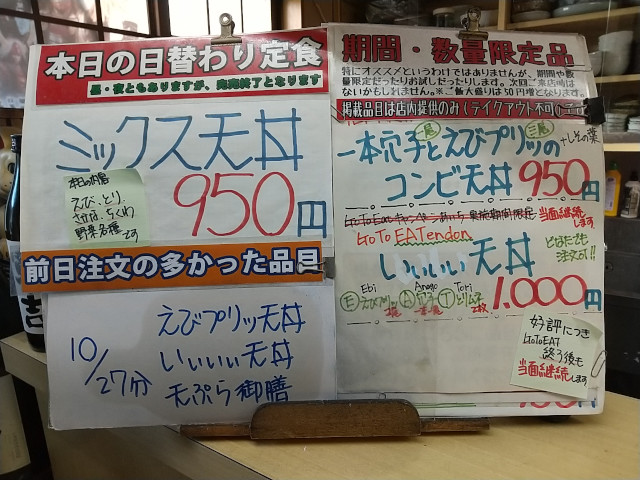 本日の日替わり定食
昼・夜ともありますが、完売終了となります
ミックス天丼
950円
本日の内容
えび、とり、
さかな、ちくわ
野菜各種です
前日注文の多かった品目
10/27分
えびプリッツ天丼
いいぃぃ天丼
天ぷら御膳
期間・数量限定品
特にオススメというわけではありませんが、期間や数
量限定だったりお試しだったりします。次回ご来店時は
ないかもしれません。※ご飯大盛りは50円増となります。
掲載品目は店内提供のみ(テイクアウト不可)
一本穴子とえびプリッツの
二尾
+しその葉
コンビ天丼 950円
当面継続します
GoTo EATendon
いいぃぃ天丼
どなたでも
注文可!!
Ebi Anago Tori
E えびプリッツ A 穴子 T とりムネ
1,000円
好評につき
GoToEAT
終了後も
当面継続します